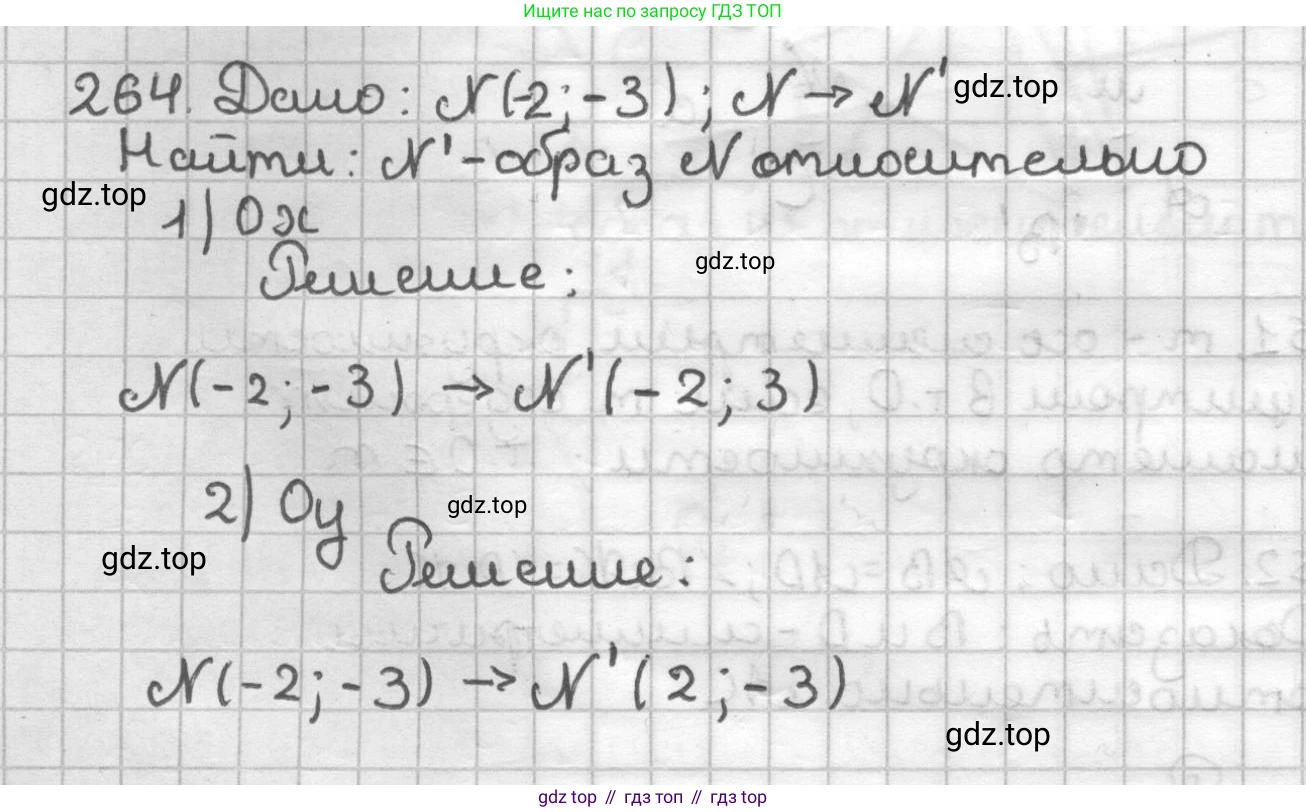 Ищите нас по запросу ГДЗ ТОП
264. Дано: N(-2; -3); N → N' gdz.top
Найти: N' - образ N относительно
gdz.top
1) Ох
gdz.top
Решение:
N(-2; -3) → N'(-2; 3)
2) Оу gdz.top
gdz.top Решение:
N(-2; -3) → N'(2; -3)
gdz.top
gdz top // гдз топ // gdz top